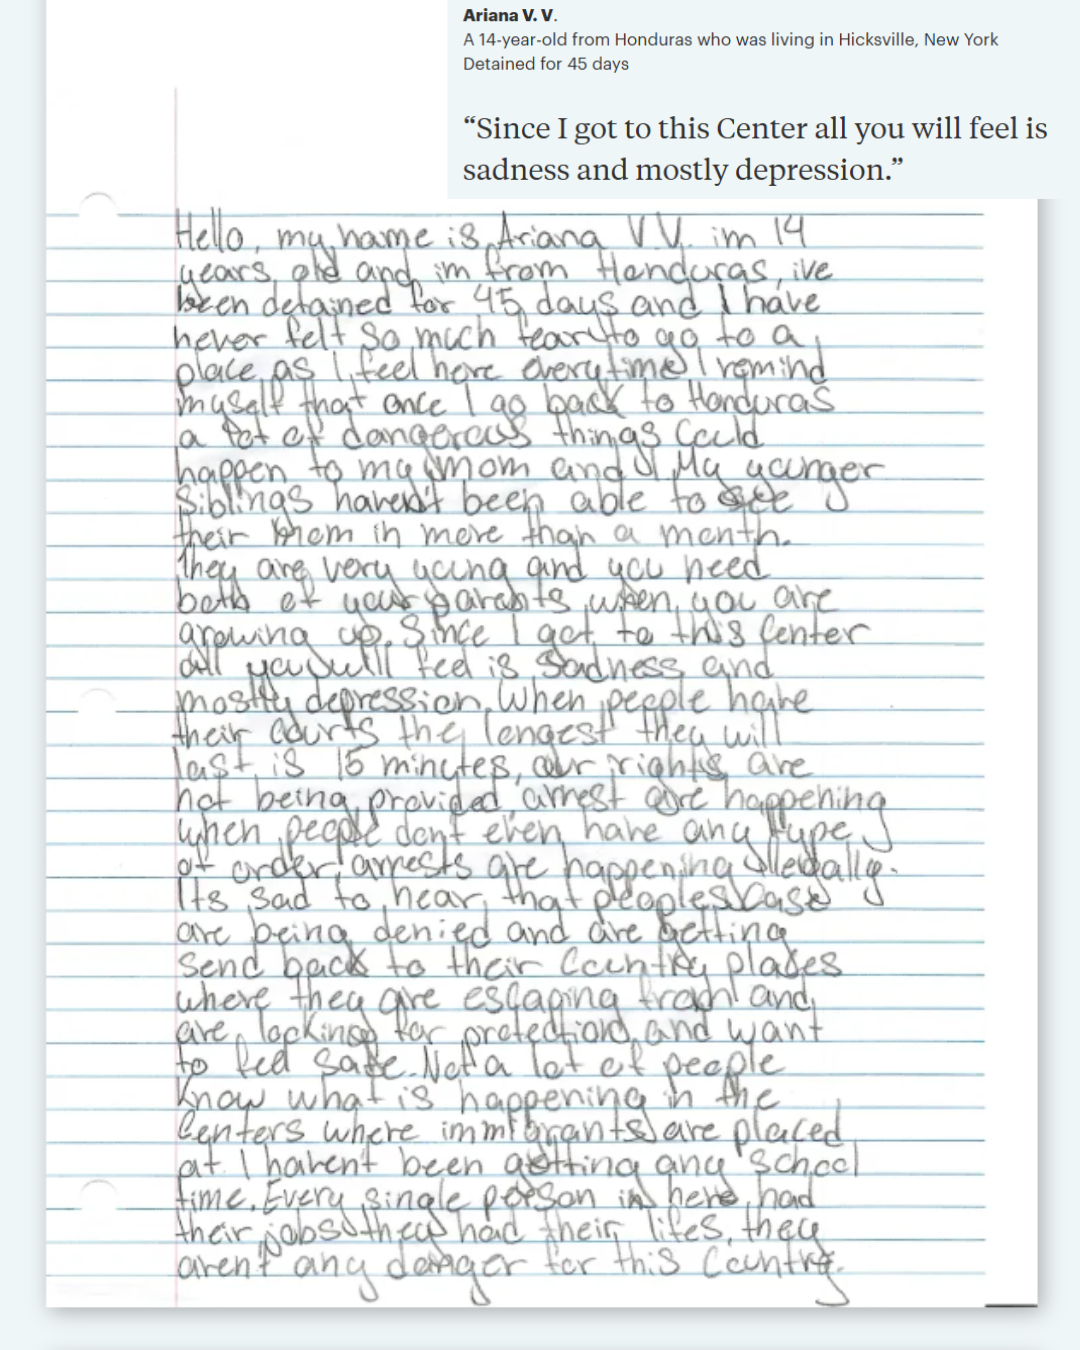 Ariana V. V.
A 14-year-old from Honduras who was living in Hicksville, New York
Detained for 45 days
“Since I got to this Center all you will feel is
sadness and mostly depression.”
Hello, my name is Ariana V.V. im 14
years old and im from Honduras, ive
been detained for 45 days and I have
never felt so much fear to go to a
place as I feel here everytime I remind
myself that once I go back to Honduras
a lot of dangerous things could
happen to my mom and I. My younger
siblings haven't been able to see
their mom in more than a month.
They are very young and you need
both of your parents when you are
growing up. Since I got to this Center
all you will feel is sadness and
mostly depression. When people have
their courts the longest they will
last is 15 minutes, our rights are
not being provided, arrest are happening
when people dont even have any type
of order, arrests are happening illegally.
Its sad to hear that peoples case
are being denied and are getting
send back to their country places
where they are escaping from and
are looking for protection and want
to feel safe. Not a lot of people
know what is happening in the
Centers where immigrants are placed
at. I haven't been getting any school
time. Every single person in here had
their jobs they had their lifes, they
aren't any danger for this Country.